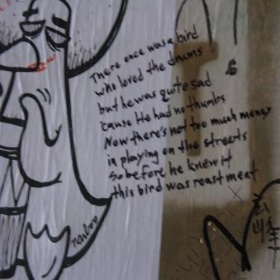 There once was a bird
who loved the drums
but he was quite sad
'cause He had no thumbs
Now there's not too much money
in playing on the streets
So before he knew it
this bird was roast meat